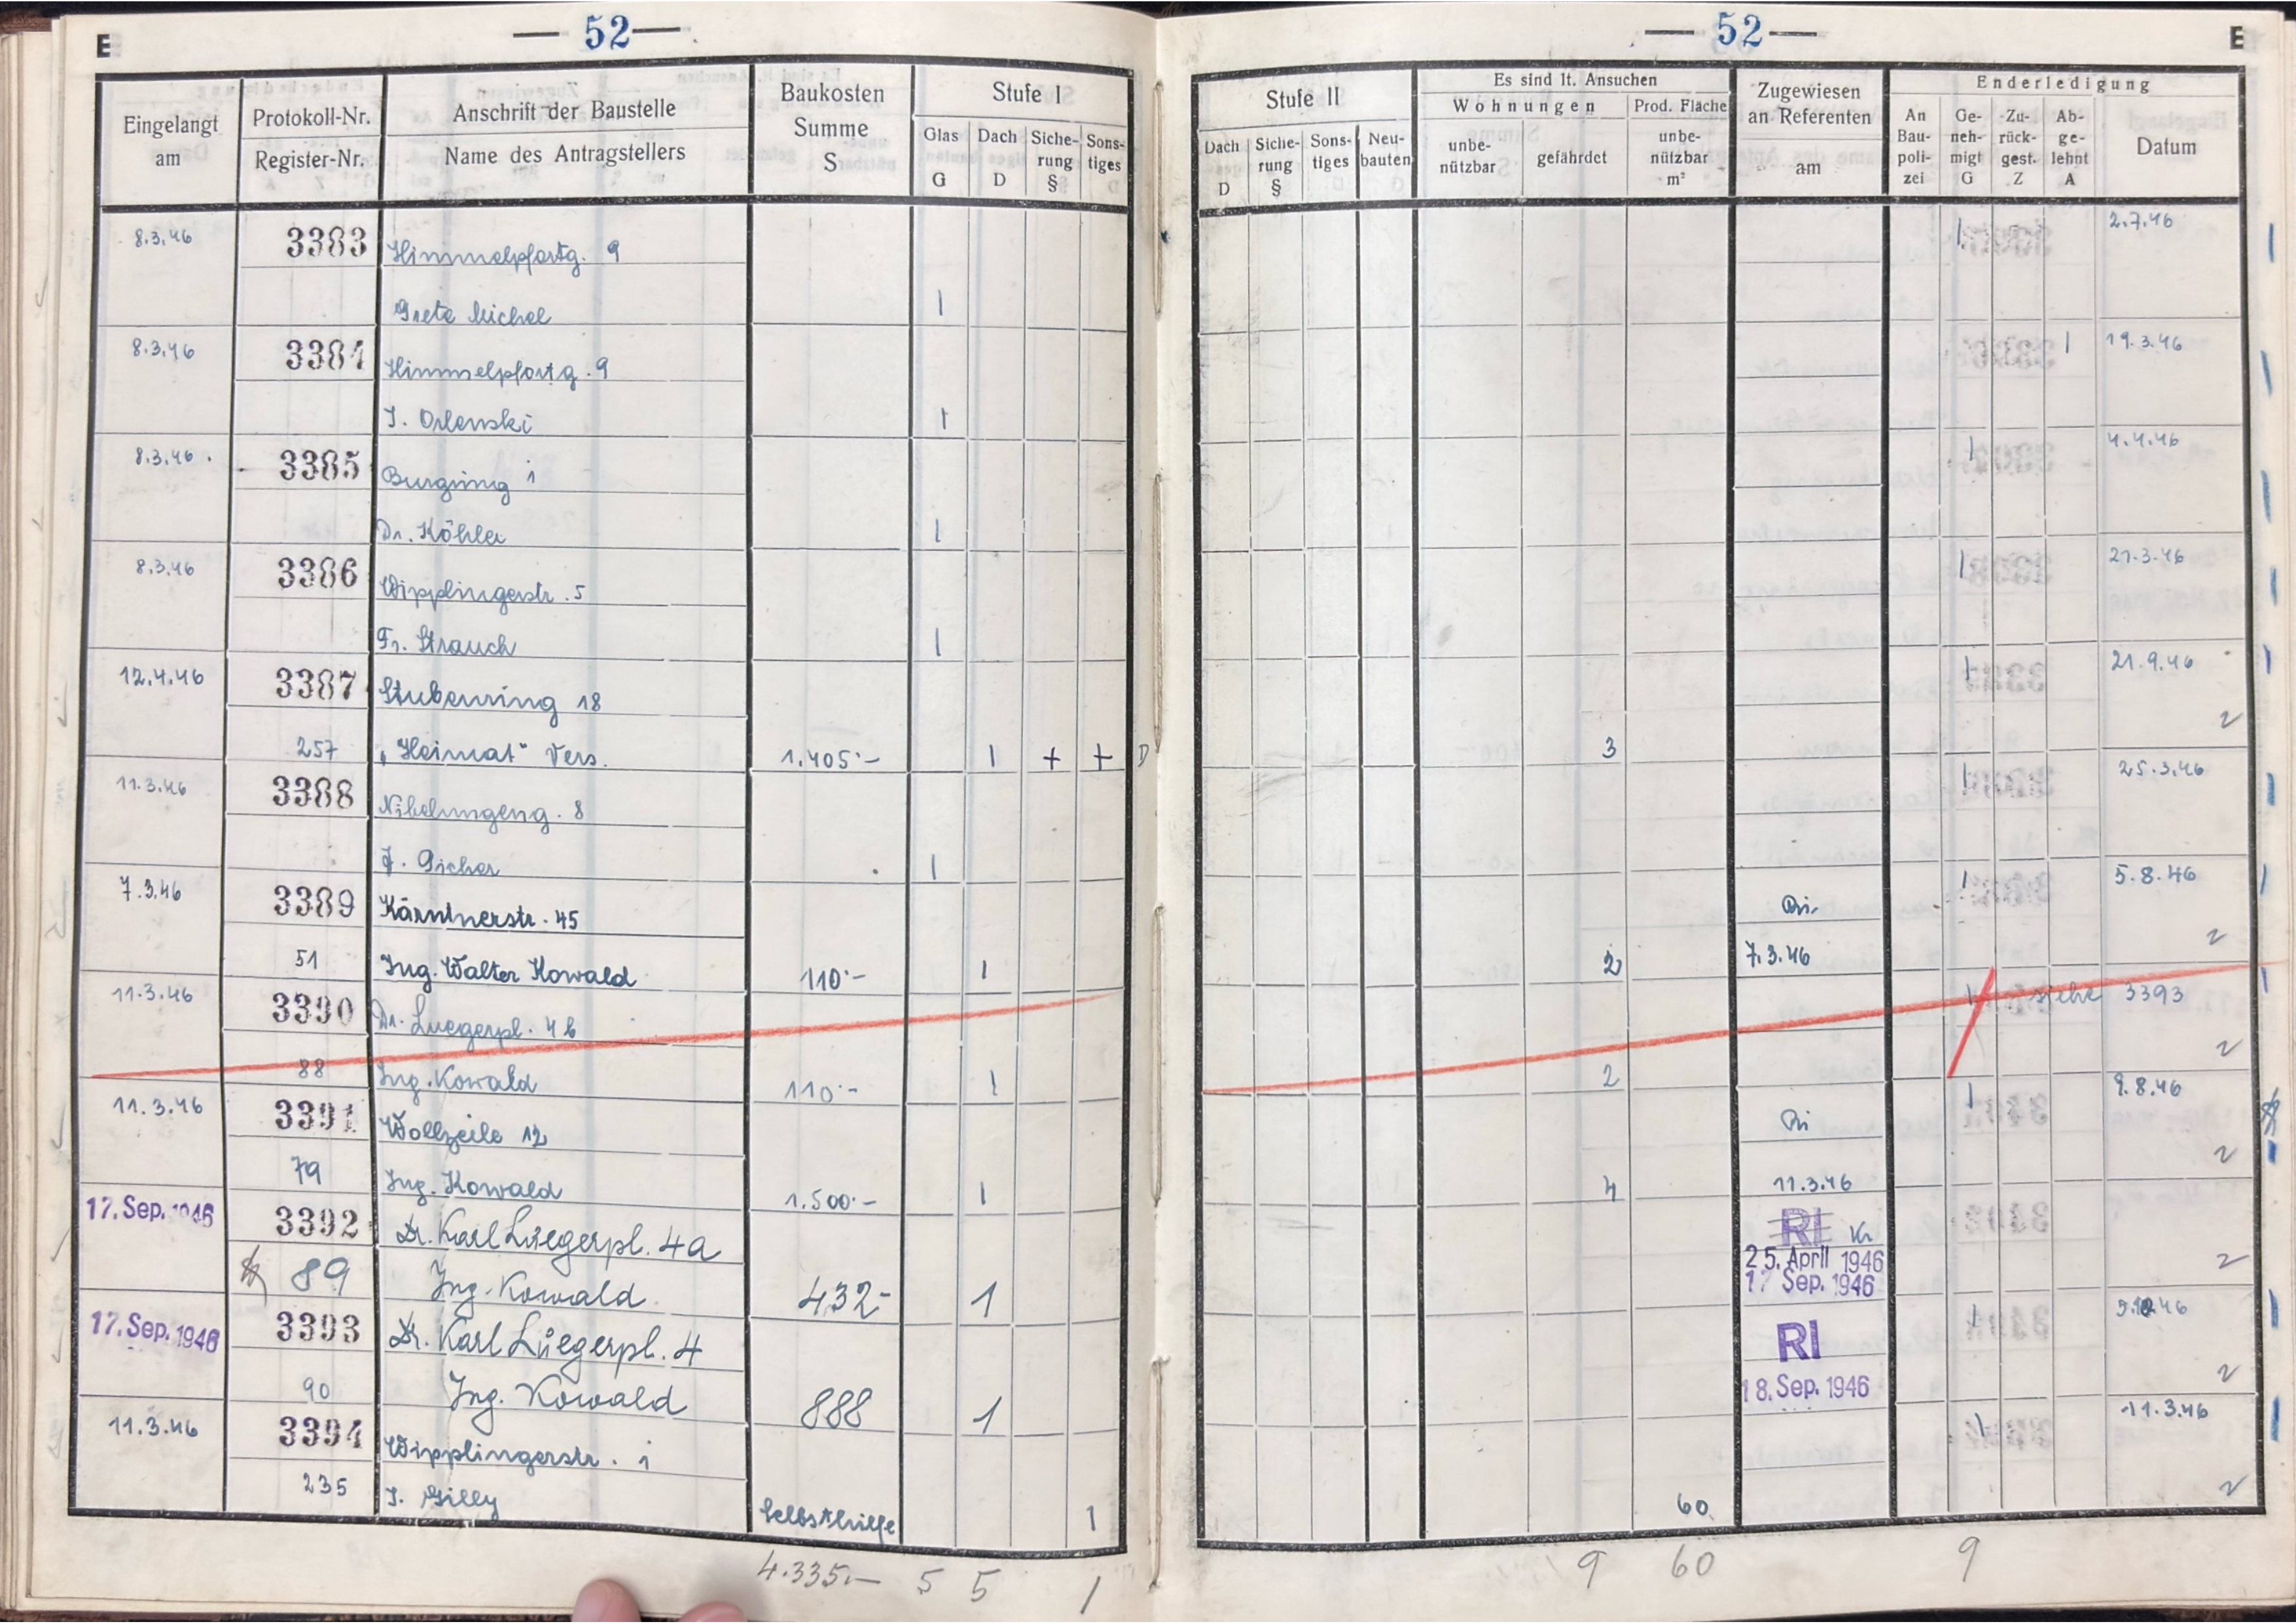 E — 52 —
Eingelangt am
Protokoll-Nr.
Register-Nr.
Anschrift der Baustelle
Name des Antragstellers
Baukosten Summe S
Stufe I
Glas G
Dach D
Siche-rung §
Sons-tiges
8.3.46 3383 Himmelpfortg. 9
Grete Michel 1
8.3.46 3384 Himmelpfortg. 9
J. Orlenski 1
8.3.46. 3385 Burgring 1
Dr. Köhler 1
8.3.46 3386 Wipplingerstr. 5
Fr. Strauch 1
12.4.46 3387 Stubenring 18
257 „Heimat" Vers. 1.405.- 1 + + D
11.3.46 3388 Nibelungeng. 8
1
7.3.46 3389 Kärntnerstr. 45
51 Ing. Walter Kowald 110.- 1
11.3.46 3390 Dr. Luegerpl. 4b
88 Ing. Kowald 110.- 1
11.3.46 3391 Wollzeile 12
79 Ing. Kowald 1.500.- 1
17. Sep. 1946 3392 Dr. Karl Luegerpl. 4a
89 Ing. Kowald 432- 1
17. Sep. 1946 3393 Dr. Karl Luegerpl. 4
90 Ing. Kowald 888 1
11.3.46 3394 Wipplingerstr. 1
235 J. Gilly Selbsthilfe 1
4.335.— 5 5 1
— 52 — E
Stufe II
Dach D
Siche-rung §
Sons-tiges
Neu-bauten
Es sind lt. Ansuchen
Wohnungen
unbe-nützbar
gefährdet
Prod. Fläche
unbe-nützbar m²
Zugewiesen an Referenten am
Enderledigung
An Bau-poli-zei
Ge-neh-migt G
Zu-rück-gest. Z
Ab-ge-lehnt A
Datum
1 2.7.46
1 19.3.46
1 4.4.46
1 21.3.46
1 21.9.46
3
1 25.3.46
Ri 1 5.8.46
2 7.3.46
1 siehe 3393
2
Ri 1 9.8.46
4 11.3.46
RI Kr
25. April 1946
17 Sep. 1946
RI 1
18. Sep. 1946
1 11.3.46
60
9 60 9